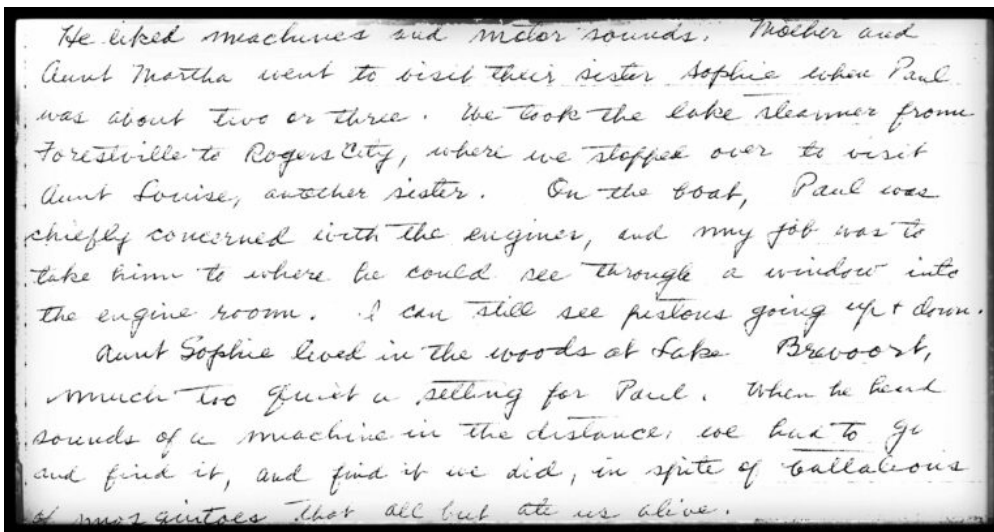 He liked machines and motor sounds. Mother and
Aunt Martha went to visit their sister Sophie when Paul
was about two or three. We took the lake steamer from
Forestville to Rogers City, where we stopped over to visit
Aunt Louise, another sister. On the boat, Paul was
chiefly concerned with the engines, and my job was to
take him to where he could see through a window into
the engine room. I can still see pistons going up + down.
Aunt Sophie lived in the woods at Lake Brevoort,
much too quiet a setting for Paul. When he heard
sounds of a machine in the distance, we had to go
and find it, and find it we did, in spite of battalions
of mosquitoes that all but ate us alive.